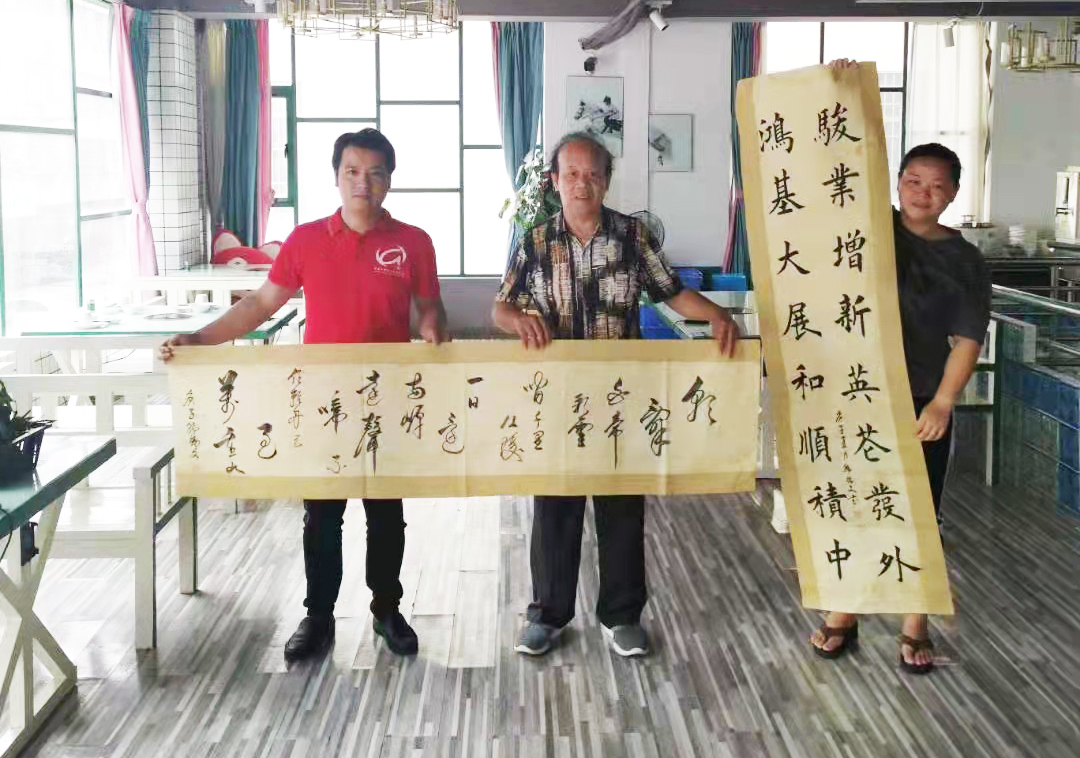 朝
辭
白帝
彩雲
間千里
江陵
一日
還
两岸
猿聲
啼不
住輕舟已
過
萬重山
駿業增新英花發外
鴻基大展和順積中